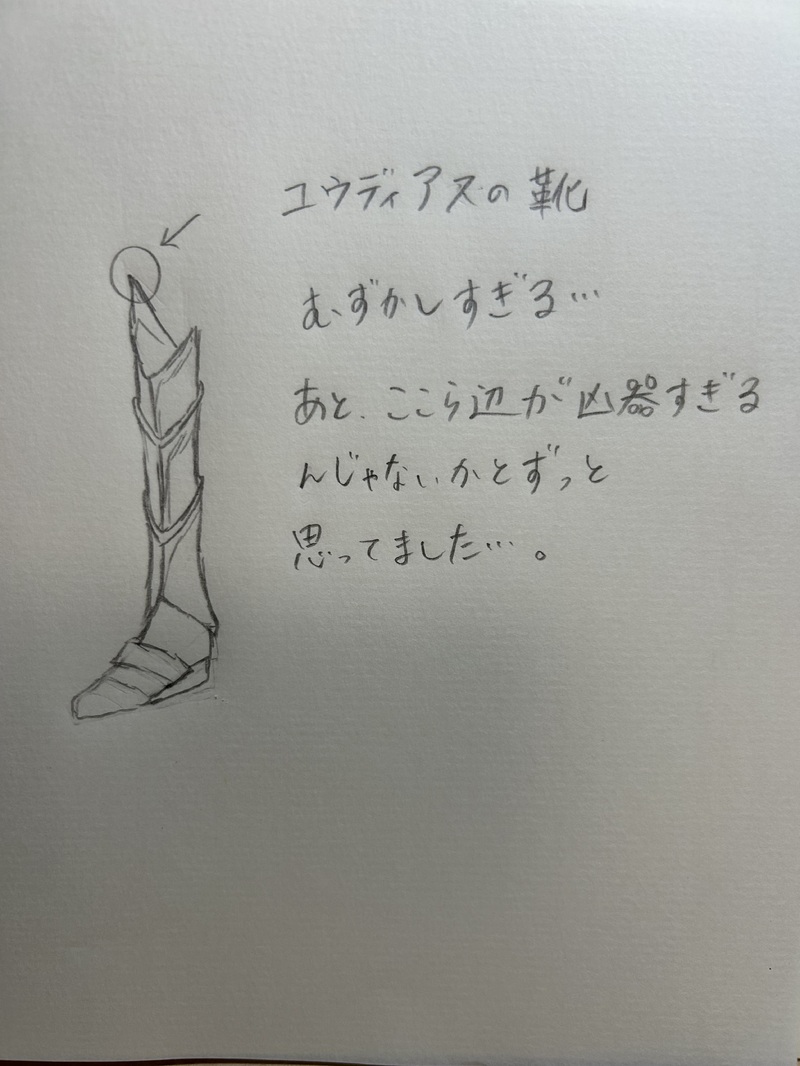 ユウディアスの靴
むずかしすぎる…
あと、ここら辺が凶器すぎる
んじゃないかとずっと
思ってました…。